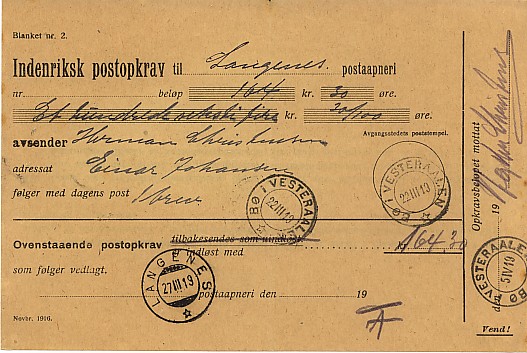 Blanket nr. 2.
Indenriksk postopkrav til Langenes. postaapneri
nr. beløp 164 kr. 30 øre.
Et hundrede seksti fire kr. 30/100 øre.
Avgangsstedets poststempel.
avsender Herman Christensen
adressat Einar Johansen
følger med dagens post 1 brev
BØ I VESTERAALEN
22 III 19
BØ I VESTERAALEN
22 III 19
Ovenstaaende postopkrav tilbakesendes som uindløst.
er indløst med 164,30
som følger vedlagt.
LANGENES
27 III 19
postaapneri den 19
A
Novbr. 1916.
Opkravsbeløpet mottat
Herman Christensen
den 19
BØ I VESTERAALEN
5 IV 19
Vend!